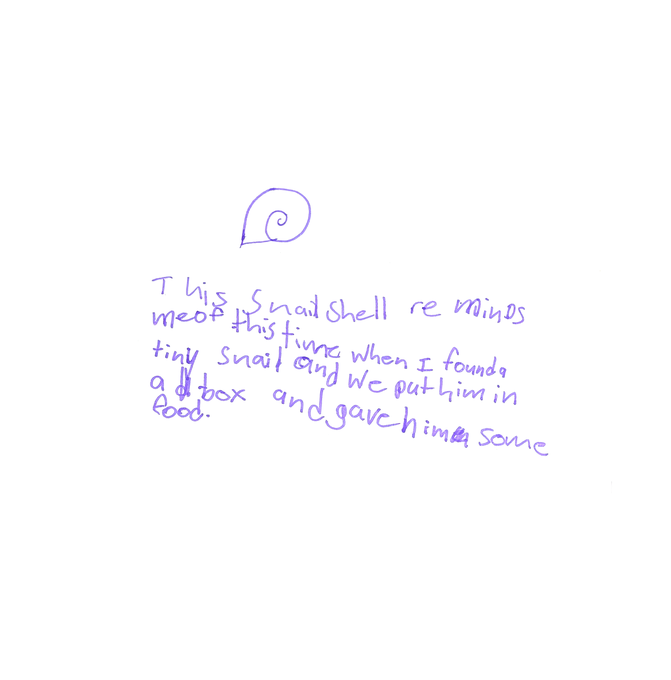 This Snail Shell re minDs
me of this time when I found a
tiny snail and We put him in
a box and gave him some
food.